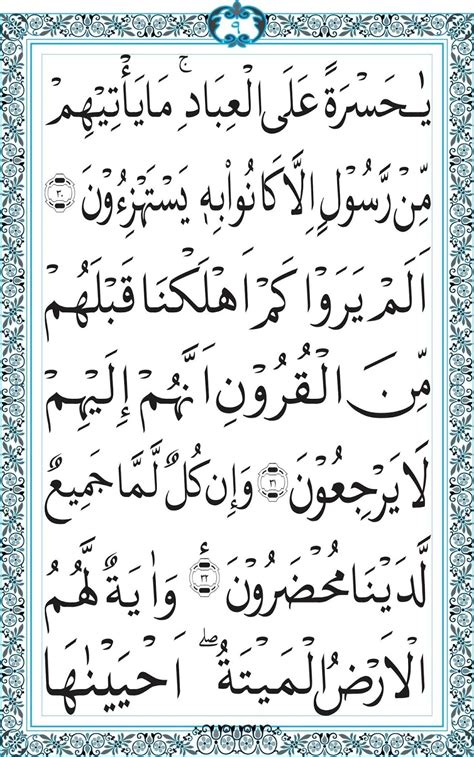 ٩
يٰحَسْرَةً عَلَى الْعِبَادِ ۚ مَا يَأْتِيْهِمْ
مِّنْ رَّسُوْلٍ اِلَّا كَانُوْا بِهٖ يَسْتَهْزِءُوْنَ ٣٠
اَلَمْ يَرَوْا كَمْ اَهْلَكْنَا قَبْلَهُمْ
مِّنَ الْقُرُوْنِ اَنَّهُمْ اِلَيْهِمْ
لَا يَرْجِعُوْنَ ٣١ وَاِنْ كُلٌّ لَّمَّا جَمِيْعٌ
لَّدَيْنَا مُحْضَرُوْنَ ٣٢ وَاٰيَةٌ لَّهُمُ
الْاَرْضُ الْمَيْتَةُ ۖ اَحْيَيْنٰهَا